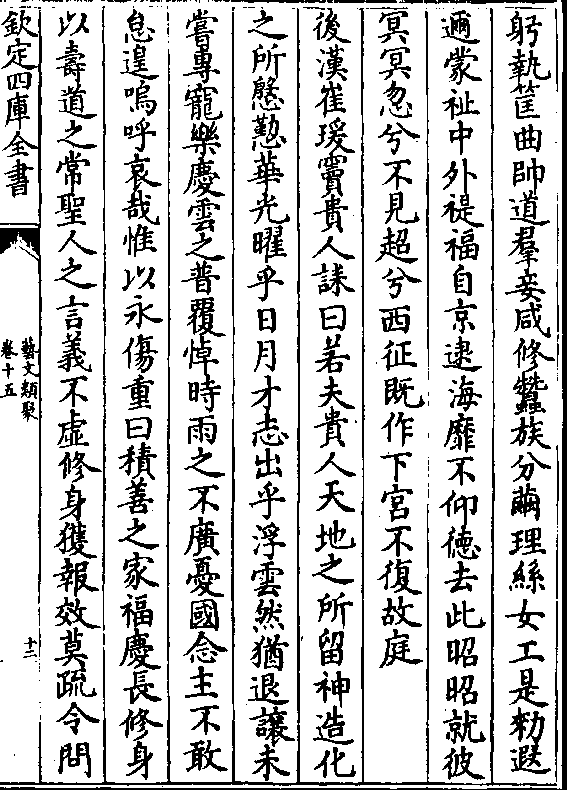 躬執筐曲帥道羣妾咸修蠶族分繭理絲女工是勑遐
邇蒙祉中外禔福自京逮海靡不仰徳去此昭昭就彼
冥冥忽兮不見超兮西征既作下宮不復故庭
後漢崔瑗竇貴人誄曰若夫貴人天地之所留神造化
之所慇懃華光曜乎日月才志出乎浮雲然猶退讓未
嘗專寵樂慶雲之普覆悼時雨之不廣憂國念主不敢
怠遑嗚呼哀哉惟以永傷重曰積善之家福慶長修身
以壽道之常聖人之言義不虛修身獲報效莫疏令問
欽定四庫全書
藝文類聚
卷十五
十三